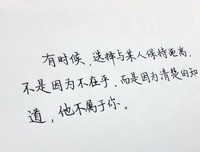 有时候，选择与某人保持距离，
不是因为不在乎，而是因为清楚的知
道，他不属于你。